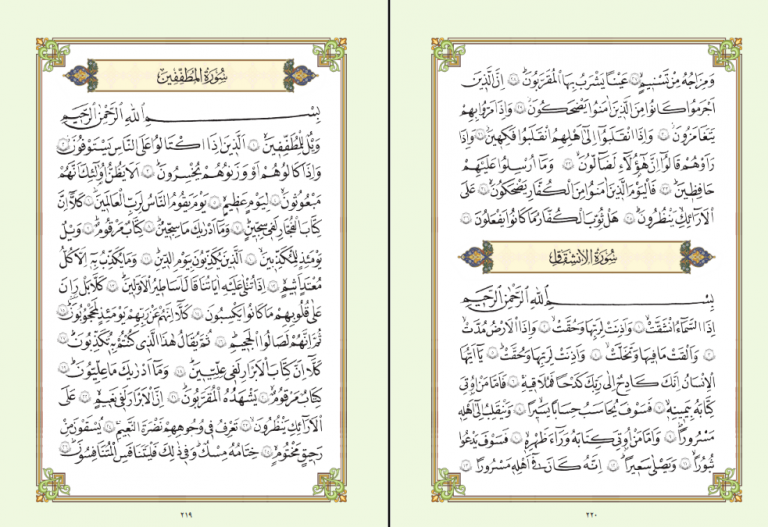 سُورَةُ المُطَفِّفِينَ
بِسْمِ اللّٰهِ الرَّحْمٰنِ الرَّحِيمِ
وَيْلٌ لِلْمُطَفِّفِينَۙ ﴿١﴾ اَلَّذِينَ اِذَا اكْتَالُوا عَلَى النَّاسِ يَسْتَوْفُونَۘ ﴿٢﴾
وَاِذَا كَالُوهُمْ اَوْ وَزَنُوهُمْ يُخْسِرُونَۜ ﴿٣﴾ اَلَا يَظُنُّ اُو۬لٰٓئِكَ اَنَّهُمْ
مَبْعُوثُونَۙ ﴿٤﴾ لِيَوْمٍ عَظِيمٍۙ ﴿٥﴾ يَوْمَ يَقُومُ النَّاسُ لِرَبِّ الْعَالَمِينَۜ ﴿٦﴾ كَلَّٓا اِنَّ
كِتَابَ الْفُجَّارِ لَفِي سِجِّينٍۜ ﴿٧﴾ وَمَٓا اَدْرٰيكَ مَا سِجِّينٌۜ ﴿٨﴾ كِتَابٌ مَرْقُومٌۜ ﴿٩﴾ وَيْلٌ
يَوْمَئِذٍ لِلْمُكَذِّبِينَۙ ﴿١٠﴾ اَلَّذِينَ يُكَذِّبُونَ بِيَوْمِ الدِّينِۜ ﴿١١﴾ وَمَا يُكَذِّبُ بِهِٓ اِلَّا كُلُّ
مُعْتَدٍ اَثِيمٍۙ ﴿١٢﴾ اِذَا تُتْلٰى عَلَيْهِ اٰيَاتُنَا قَالَ اَسَاطِيرُ الْاَوَّلِينَۜ ﴿١٣﴾ كَلَّا بَلْ رَانَ
عَلٰى قُلُوبِهِمْ مَا كَانُوا يَكْسِبُونَ ﴿١٤﴾ كَلَّٓا اِنَّهُمْ عَنْ رَبِّهِمْ يَوْمَئِذٍ لَمَحْجُوبُونَۜ ﴿١٥﴾
ثُمَّ اِنَّهُمْ لَصَالُوا الْجَحِيمِۜ ﴿١٦﴾ ثُمَّ يُقَالُ هٰذَا الَّذِي كُنْتُمْ بِهِ تُكَذِّبُونَۜ ﴿١٧﴾
كَلَّٓا اِنَّ كِتَابَ الْاَبْرَارِ لَفِي عِلِّيِّينَۜ ﴿١٨﴾ وَمَٓا اَدْرٰيكَ مَا عِلِّيُّونَۜ ﴿١٩﴾
كِتَابٌ مَرْقُومٌۙ ﴿٢٠﴾ يَشْهَدُهُ الْمُقَرَّبُونَۜ ﴿٢١﴾ اِنَّ الْاَبْرَارَ لَفِي نَعِيمٍۙ ﴿٢٢﴾ عَلَى
الْاَرَٓائِكِ يَنْظُرُونَۙ ﴿٢٣﴾ تَعْرِفُ فِي وُجُوهِهِمْ نَضْرَةَ النَّعِيمِۚ ﴿٢٤﴾ يُسْقَوْنَ مِنْ
رَحِيقٍ مَخْتُومٍۙ ﴿٢٥﴾ خِتَامُهُ مِسْكٌۜ وَفِي ذٰلِكَ فَلْيَتَنَافَسِ الْمُتَنَافِسُونَۜ ﴿٢٦﴾
٢١٩
وَمِزَاجُهُ مِنْ تَسْنِيمٍۙ ﴿٢٧﴾ عَيْنًا يَشْرَبُ بِهَا الْمُقَرَّبُونَۜ ﴿٢٨﴾ اِنَّ الَّذِينَ
اَجْرَمُوا كَانُوا مِنَ الَّذِينَ اٰمَنُوا يَضْحَكُونَۘ ﴿٢٩﴾ وَاِذَا مَرُّوا بِهِمْ
يَتَغَامَزُونَۘ ﴿٣٠﴾ وَاِذَا انْقَلَبُٓوا اِلٰٓى اَهْلِهِمُ انْقَلَبُوا فَكِهِينَۘ ﴿٣١﴾ وَاِذَا
رَاَوْهُمْ قَالُٓوا اِنَّ هٰٓؤُ۬لَٓاءِ لَضَٓالُّونَۙ ﴿٣٢﴾ وَمَٓا اُرْسِلُوا عَلَيْهِمْ
حَافِظِينَۜ ﴿٣٣﴾ فَالْيَوْمَ الَّذِينَ اٰمَنُوا مِنَ الْكُفَّارِ يَضْحَكُونَۙ ﴿٣٤﴾ عَلَى
الْاَرَٓائِكِ يَنْظُرُونَۜ ﴿٣٥﴾ هَلْ ثُوِّبَ الْكُفَّارُ مَا كَانُوا يَفْعَلُونَ ﴿٣٦﴾
سُورَةُ الِانْشِقَاقِ
بِسْمِ اللّٰهِ الرَّحْمٰنِ الرَّحِيمِ
اِذَا السَّمَٓاءُ انْشَقَّتْۙ ﴿١﴾ وَاَذِنَتْ لِرَبِّهَا وَحُقَّتْۙ ﴿٢﴾ وَاِذَا الْاَرْضُ مُدَّتْۙ
﴿٣﴾ وَاَلْقَتْ مَا فِيهَا وَتَخَلَّتْۙ ﴿٤﴾ وَاَذِنَتْ لِرَبِّهَا وَحُقَّتْۜ ﴿٥﴾ يَٓا اَيُّهَا
الْاِنْسَانُ اِنَّكَ كَادِحٌ اِلٰى رَبِّكَ كَدْحًا فَمُلَاقِيهِۚ ﴿٦﴾ فَاَمَّا مَنْ اُو۫تِيَ
كِتَابَهُ بِيَمِينِهِۙ ﴿٧﴾ فَسَوْفَ يُحَاسَبُ حِسَابًا يَسِيرًاۙ ﴿٨﴾ وَيَنْقَلِبُ اِلٰٓى اَهْلِهِ
مَسْرُورًاۜ ﴿٩﴾ وَاَمَّا مَنْ اُو۫تِيَ كِتَابَهُ وَرَٓاءَ ظَهْرِهِۙ ﴿١٠﴾ فَسَوْفَ يَدْعُوا
ثُبُورًاۙ ﴿١١﴾ وَيَصْلٰى سَعِيرًاۜ ﴿١٢﴾ اِنَّهُ كَانَ فِٓي اَهْلِهِ مَسْرُورًاۜ ﴿١٣﴾
٢٢٠